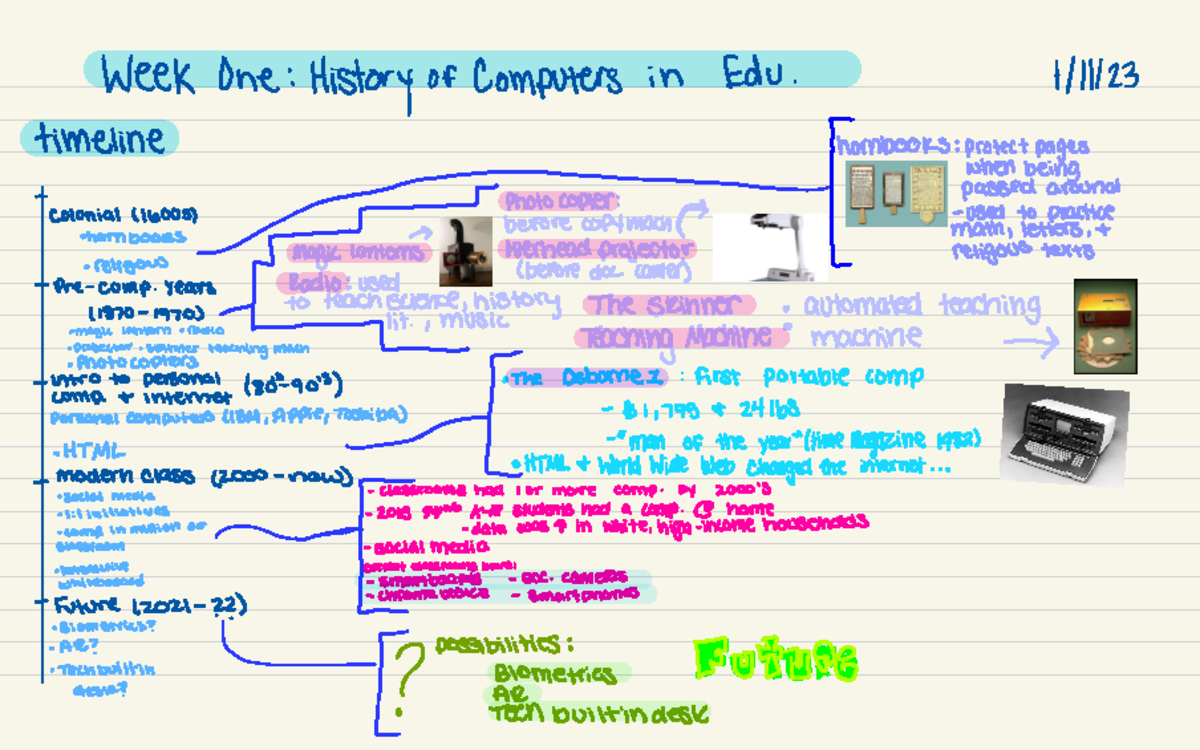 Week One: History of Computers in Edu.
1/11/23
timeline
Colonial (1600s)
• hornbooks
• religious
Pre-comp. years
(1870-1970)
• magic lantern • radio
• projector • skinner teaching mach
• Photocopiers
intro to personal
comp. + internet (80s-90's)
personal computers (IBM, Apple, Toshiba)
• HTML
modern class (2000-now)
• social media
• 1:1 initiatives
• comp in
classroom
• interactive
whiteboard
Future (2021-22)
• Biometrics?
• AR?
• Tech built in
desk?
hornbooks: protect pages
when being
passed around
- used to practice
math, letters, +
religous texts
Photo copier:
before copy mach
Magic lantorns
Overhead projector
(before doc. camer)
Radio: used
to teach science, history
lit., music
The Skinner
Teaching Machine:
• automated teaching
machine
• The Osborne I : first portable comp
- $1,799 + 24 lbs
- "man of the year" (time magazine 1982)
• HTML + World Wide Web changed the internet...
- classrooms had 1 or more comp. by 2000's
- 2013 students had a comp. @ home
- data was ↑ in white, high-income households
- social media
- smartboards - doc. cameras
- chromebooks - smartphones
? possibilities:
Biometrics
AR
Tech built in desk
Future